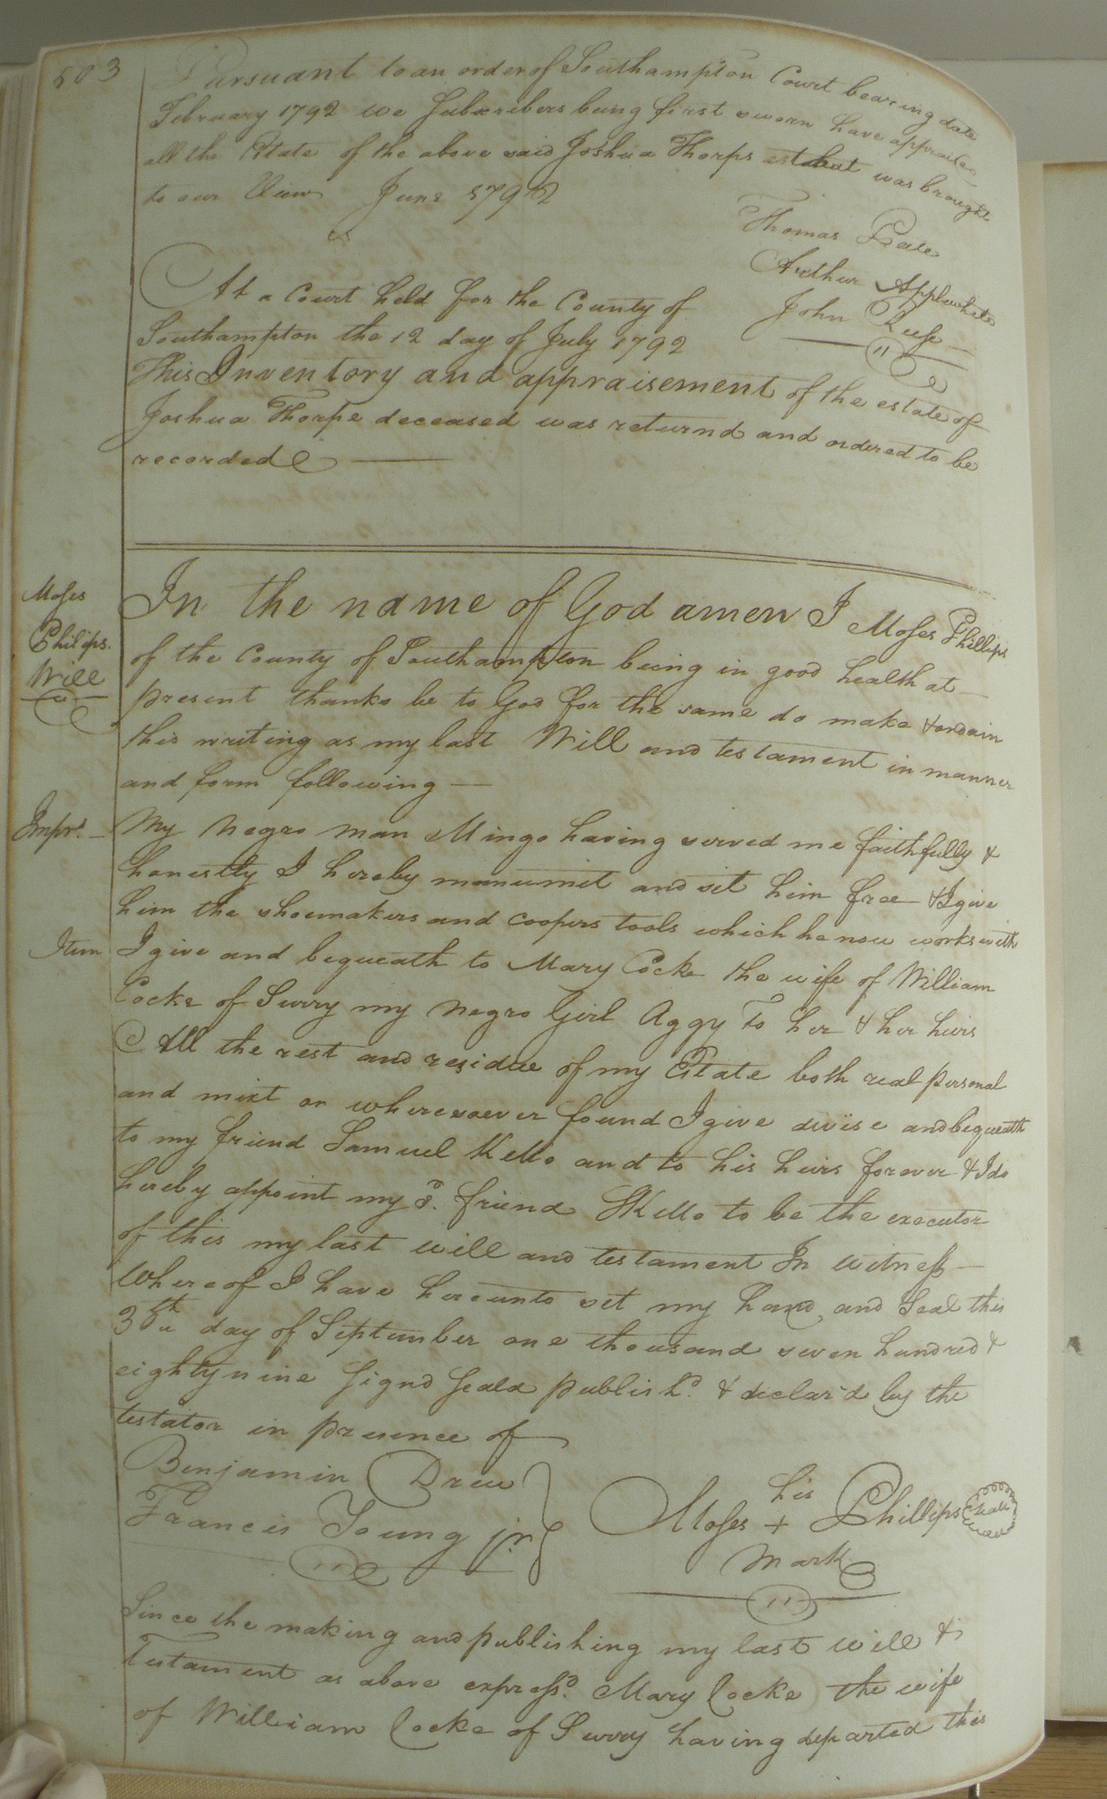 503
Pursuant to an order of Southampton Court bearing date
February 1792 we Subscribers being first sworn have appraised
all the Estate of the above said Joshua Thorps est that was brought
to our View June 1792
Thomas Peale
Arthur Applewhite
John Keefe
At a Court held for the County of
Southampton the 12 day of July 1792
This Inventory and appraisement of the estate of
Joshua Thorpe deceased was returnd and ordered to be
recorded
Moses
Philips.
Will
In the name of God amen I Moses Phillips
of the County of Southampton being in good health at
present thanks be to God for the same do make & ordain
this writing as my last Will and testament in manner
and form following
Imprs. My Negro man Mingo having served me faithfully &
honestly I hereby manumit and set him free & I give
him the shoemakers and coopers tools which he now works with
Item I give and bequeath to Mary Cocke the wife of William
Cocke of Surry my negro Girl Aggy To her & her heirs
All the rest and residue of my Estate both real personal
and mixt or wheresoever found I give devise and bequeath
to my friend Samuel Kello and to his heirs forever & I do
hereby appoint my sd. friend SKello to be the executor
of this my last will and testament In witness
Whereof I have hereunto set my hand and Seal this
30th day of September one thousand seven hundred &
eighty nine Signd Seald publishd. & declar'd by the
testator in presence of
Benjamin Drew
Francis Young jr
his
Moses + Phillips Seal
mark
Since the making and publishing my last will &
Testament as above expressd. Mary Cocke the wife
of William Cocke of Surry having departed this